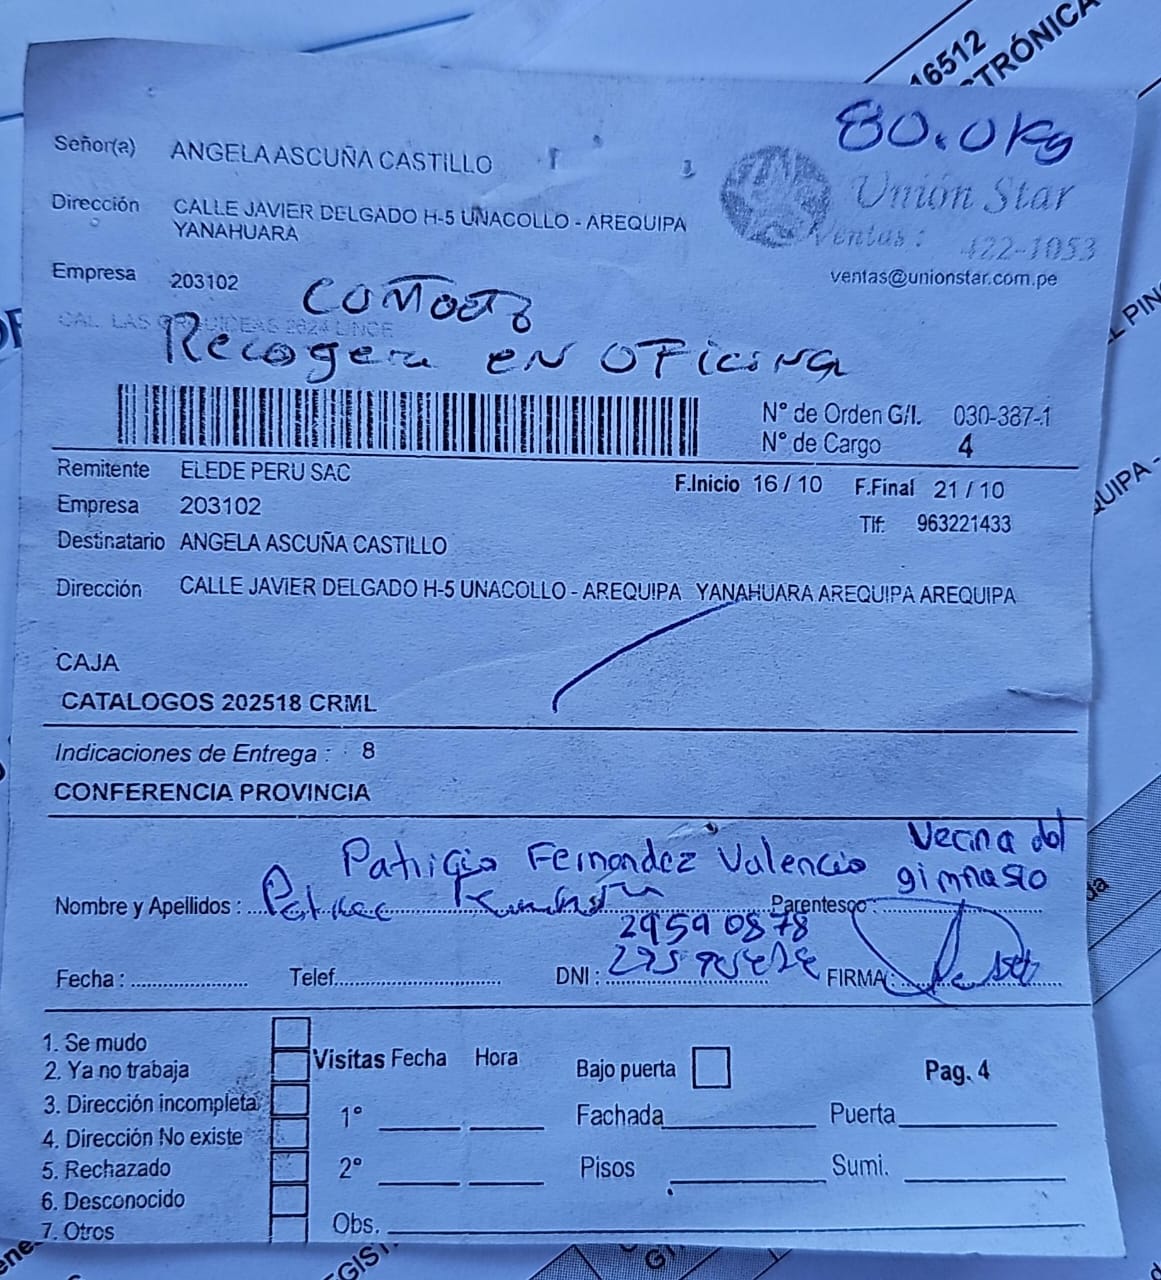 16512
TRÓNICA
80.0 Kg
Señor(a) ANGELA ASCUÑA CASTILLO
Unión Star
Ventas: 422-1053
ventas@unionstar.com.pe
Dirección CALLE JAVIER DELGADO H-5 UNACOLLO - AREQUIPA
YANAHUARA
Empresa 203102
CAL. LAS ORQUIDEAS 2624 LINCE
Recogera en oficina
N° de Orden G/I. 030-387-1
N° de Cargo 4
Remitente ELEDE PERU SAC
F.Inicio 16 / 10 F.Final 21 / 10
Empresa 203102
Tlf: 963221433
Destinatario ANGELA ASCUÑA CASTILLO
Dirección CALLE JAVIER DELGADO H-5 UNACOLLO - AREQUIPA YANAHUARA AREQUIPA AREQUIPA
CAJA
CATALOGOS 202518 CRML
Indicaciones de Entrega : 8
CONFERENCIA PROVINCIA
Patricia Fernandez Valencia
Vecina del
gimnasio
Nombre y Apellidos : Parentesco:
29590878
Fecha : Telef. DNI : FIRMA:
1. Se mudo
2. Ya no trabaja
3. Dirección incompleta
4. Dirección No existe
5. Rechazado
6. Desconocido
7. Otros
Visitas Fecha Hora
1°
2°
Bajo puerta
Pag. 4
Fachada Puerta
Pisos Sumi.
Obs.
QUIPA -